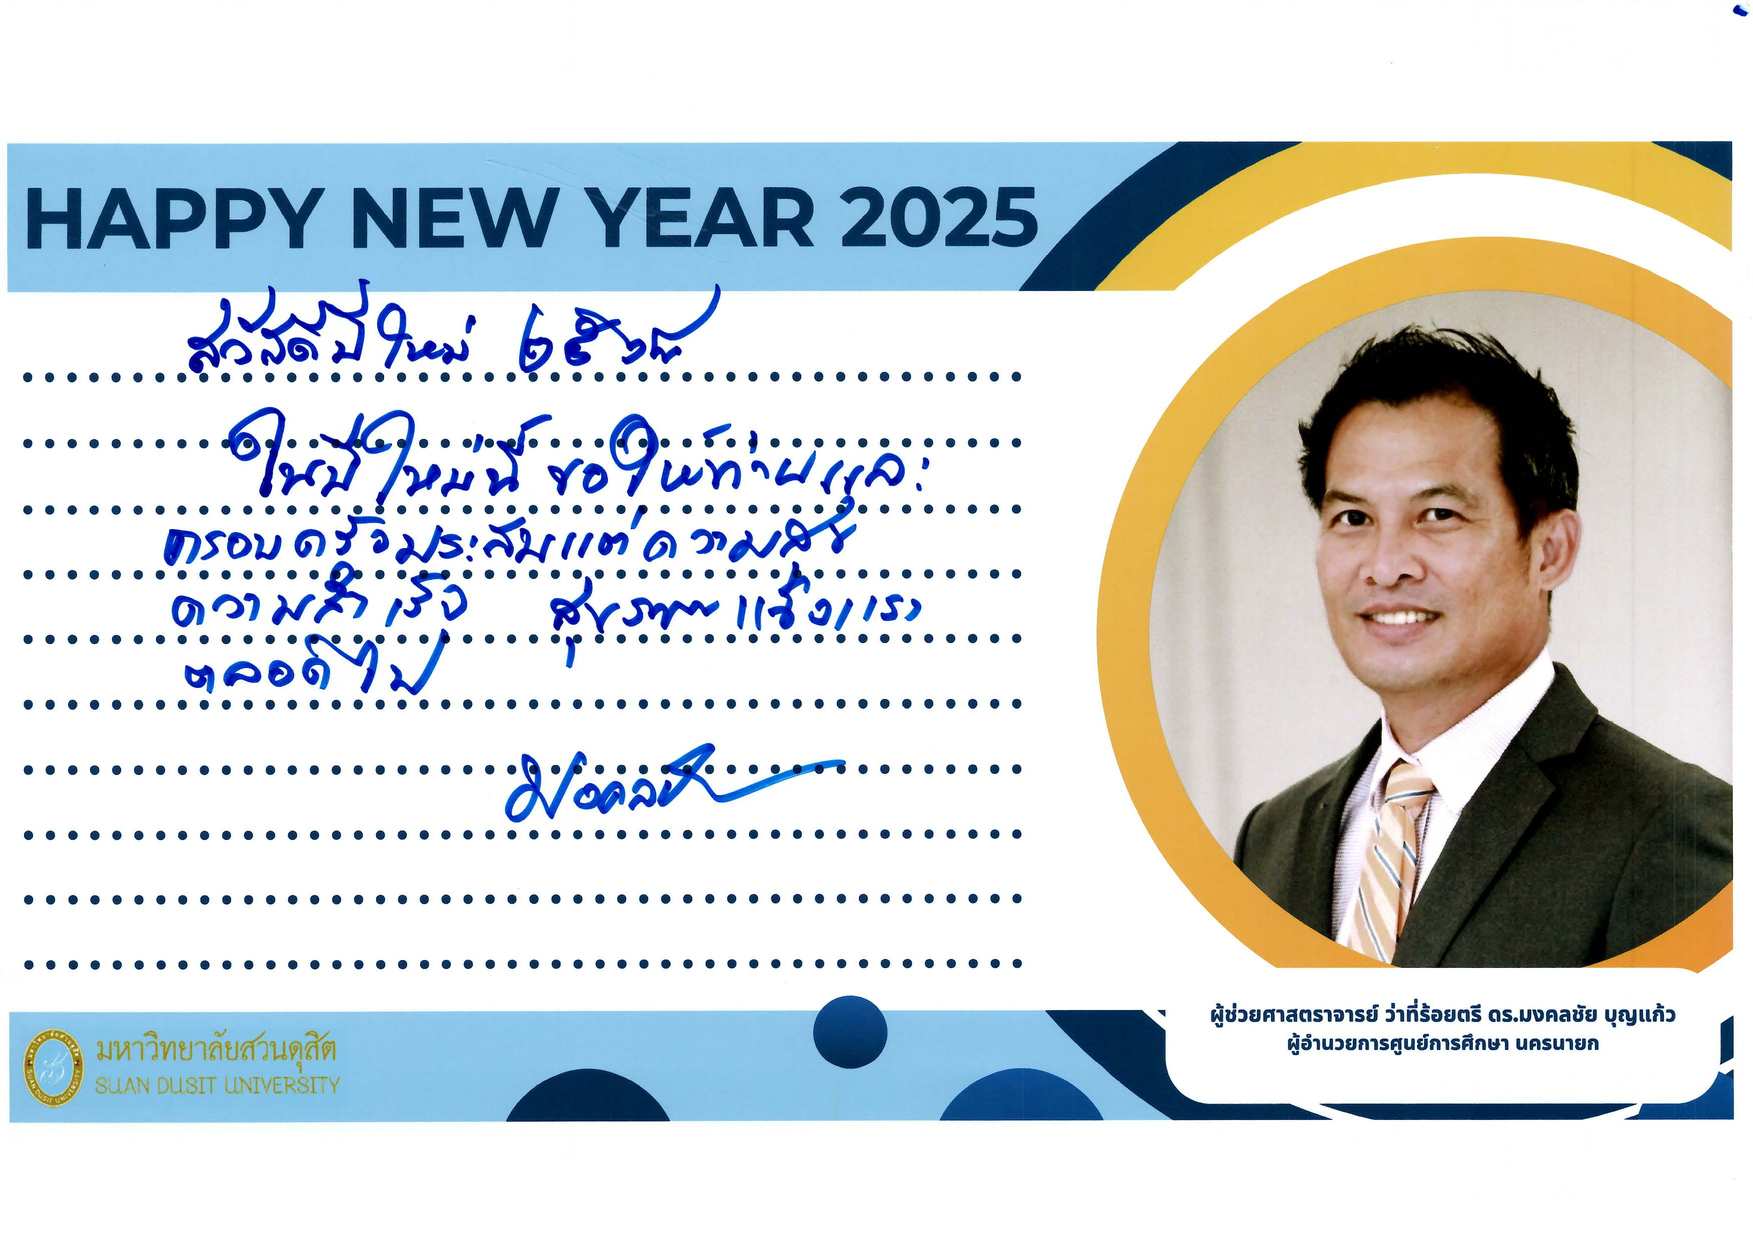 HAPPY NEW YEAR 2025
สวัสดีปีใหม่ ๒๕๖๘
ในปีใหม่นี้ ขอให้ท่านและ
ครอบครัวประสบแต่ความสุข
ความสำเร็จ สุขภาพแข็งแรง
ตลอดไป
มงคลชัย
ผู้ช่วยศาสตราจารย์ ว่าที่ร้อยตรี ดร.มงคลชัย บุญแก้ว
ผู้อำนวยการศูนย์การศึกษา นครนายก
มหาวิทยาลัยสวนดุสิต
SUAN DUSIT UNIVERSITY